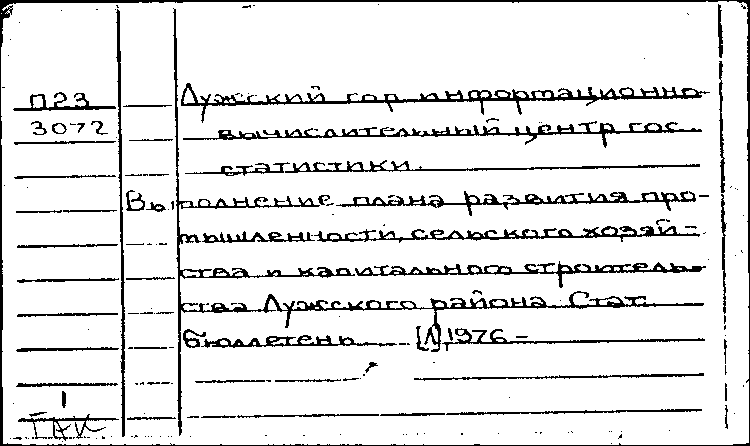 П23
3072
Лужский гор информационно-
вычислительный центр гос.
статистики.
Выполнение плана развития про-
мышленности, сельского хозяй-
ства и капитального строитель-
ства Лужского района. Стат.
бюллетень. [Л], 1976 -
1
ГАК